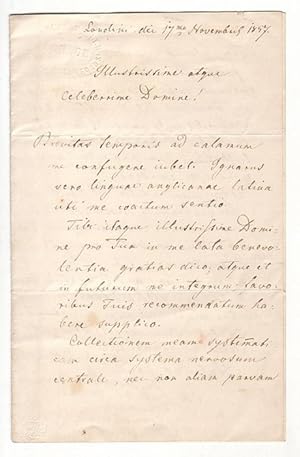 Londini die 17ma Novembris 1857.
Illustrissime atque
Celeberrime Domine!
Brevitas temporis ad calamum
me confugere iubet. Ignarus
vero linguae anglicanae latina
uti me coactum sentio.
Tibi itaque illustrissime Domi-
ne pro Tua in me lata benevo-
lentia gratias dico, atque et
in futurum me integrum favo-
ribus Tuis recommendatum ha-
bere supplico.
Collectionem meam systemati-
cam circa systema nervosum
centrale, nec non aliam parvam